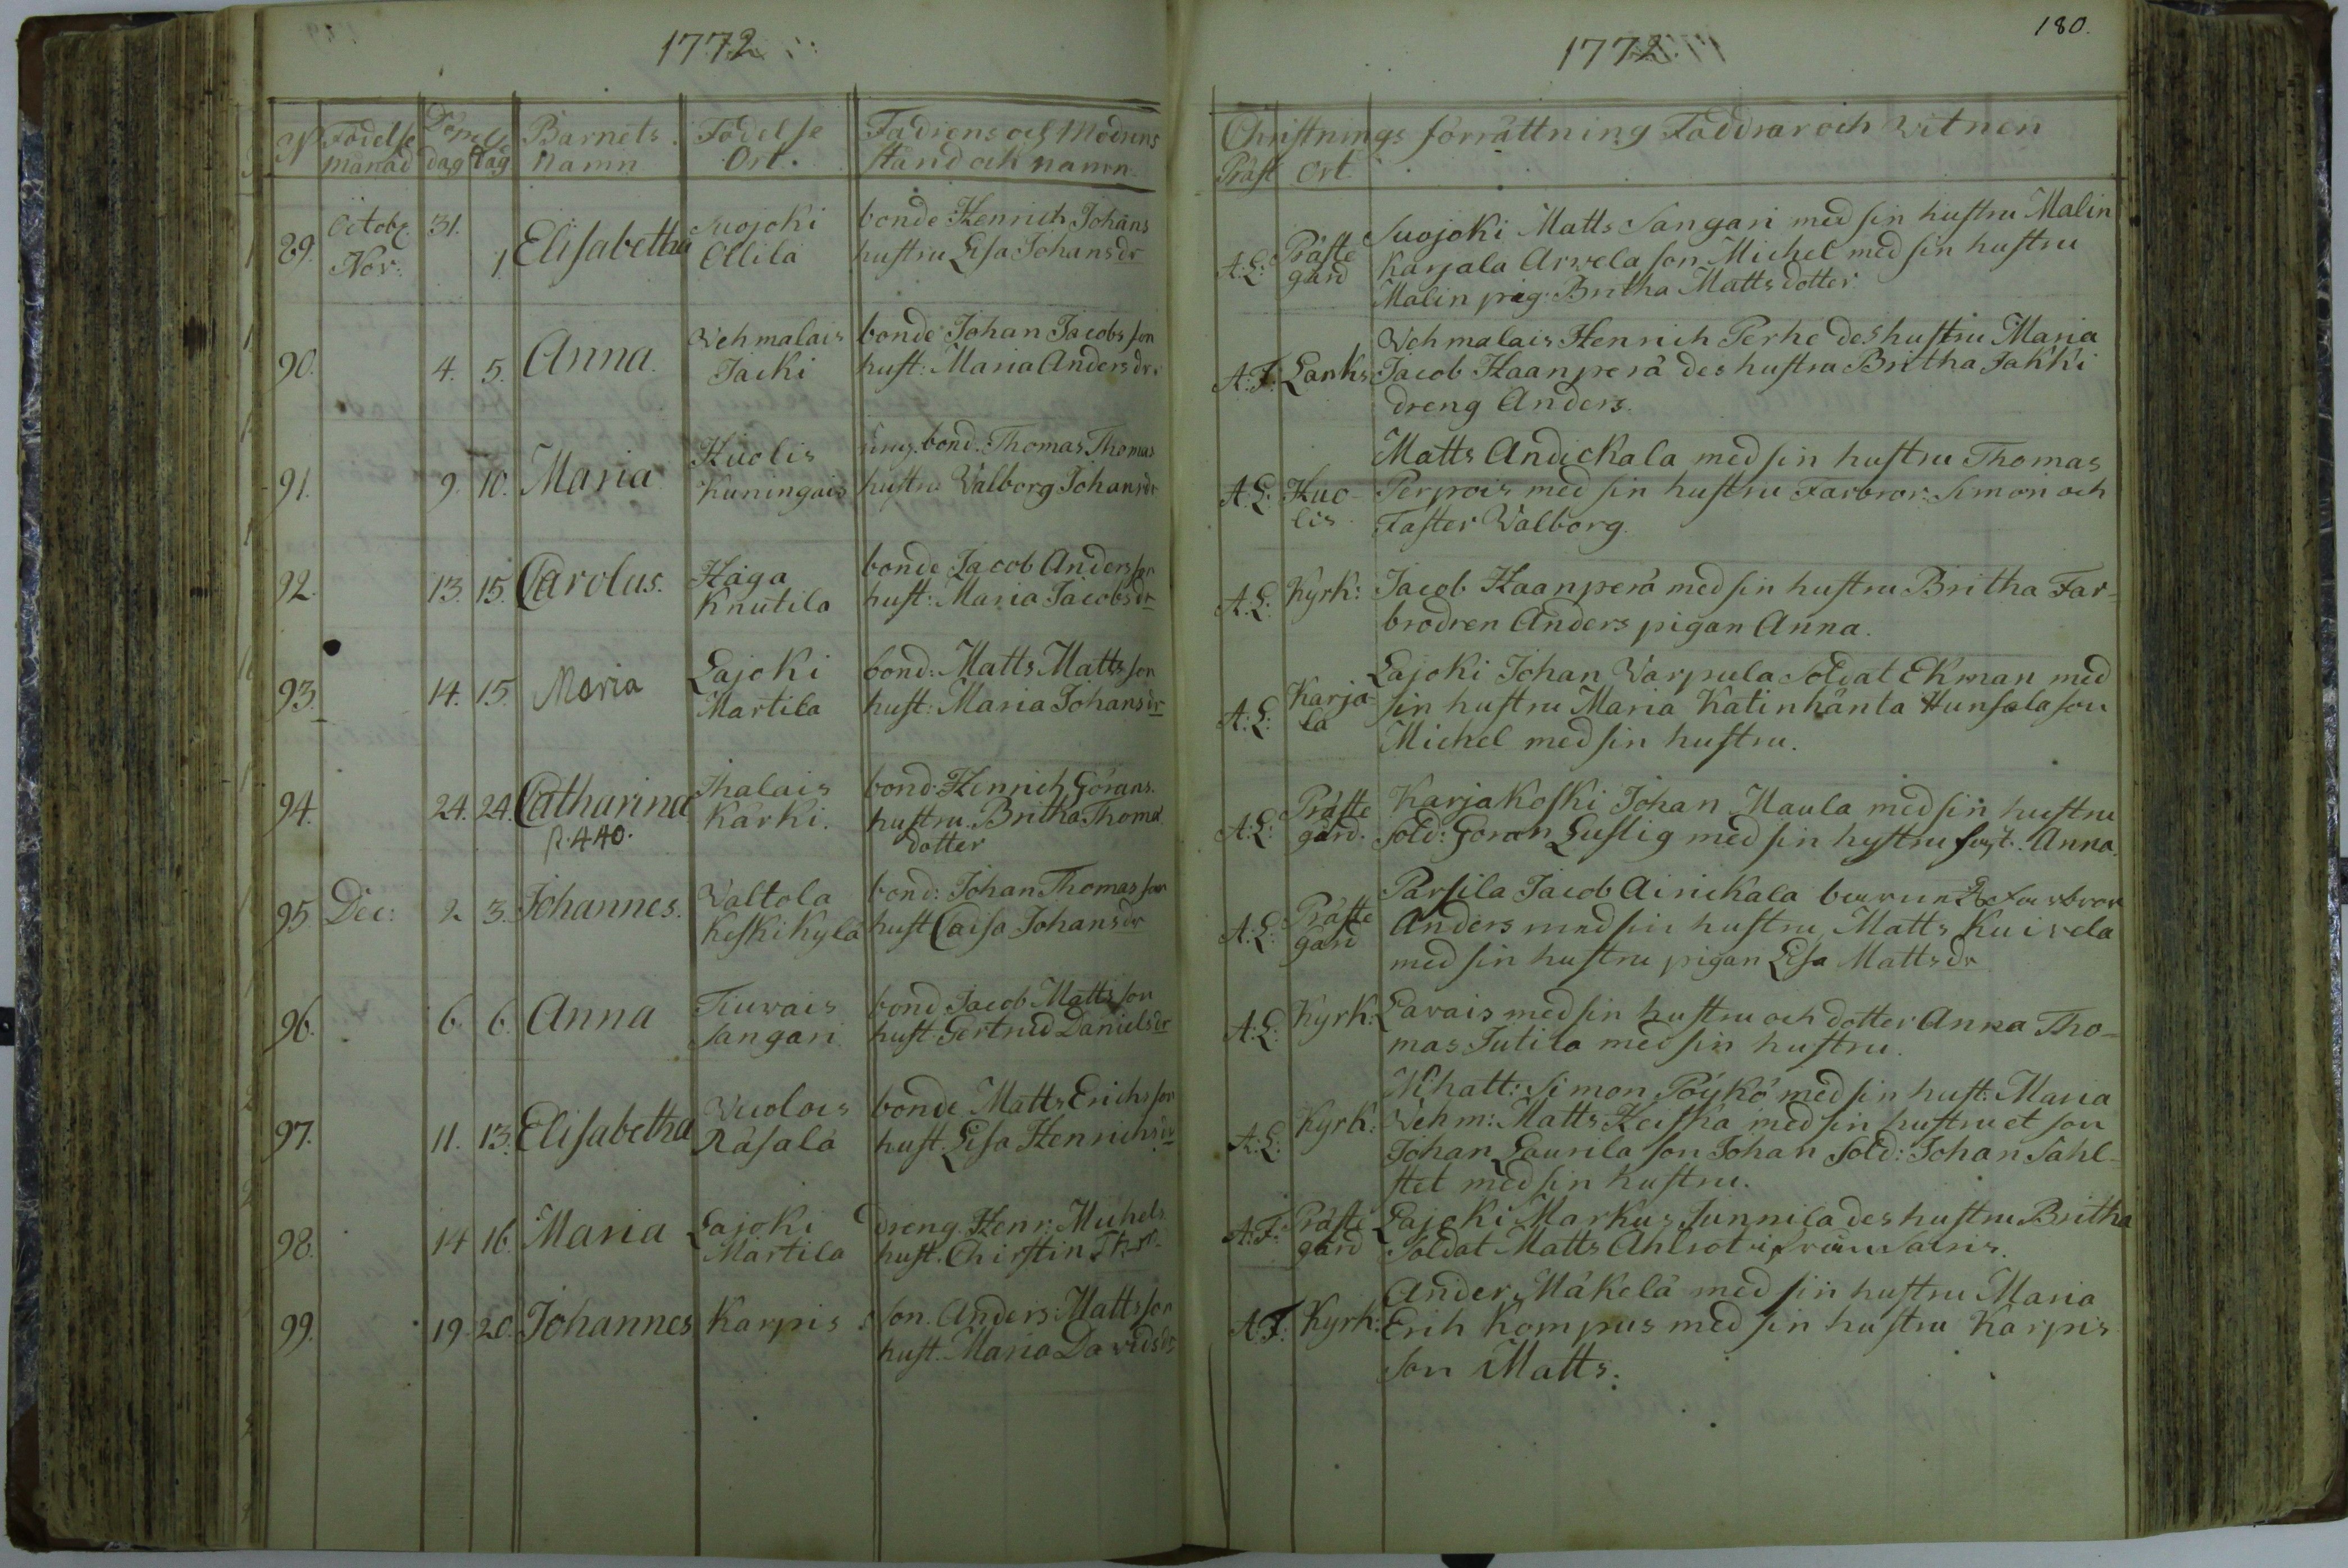 1772
No Födelse månad Födelse dag Döpelse dag Barnets Namn Födelse Ort. Fadrens och Modrens stånd och namn
89. Octobr 31. Elisabetha Suojoki bonde Henrich Johans
Nov: 1. Ollila hustru Lisa Johansdr
90. 4. 5. Anna. Vehmalais bonde Johan Jacobsson
Jacki hust: Maria Andersdr.
91. 9. 10. Maria Kuolis bond. Thomas Thomas
Kuningais hustru Valborg Johansdr
92. 13. 15. Carolus. Haga bonde Jacob Andersson
Knutila hust: Maria Jacobsdr
93. 14. 15. Maria Lajoki bond: Matts Mattsson
Martila hust: Maria Johansdr
94. 24. 24. Catharina Ihalais bond: Henrich Görans.
p. 440. Kärki. hustru Britha Thomas
dotter
95 Dec: 2. 3. Johannes. Valtola bond: Johan Thomasson
Keskikylä hust Caisa Johansdr
96. 6. 6. Anna Tiuvais bond Jacob Mattsson
Sangari hust Gertrud Danielsdr
97. 11. 13. Elisabetha Vuolois bonde Matts Erichsson
Räsälä hust Lisa Henrichsdr
98. 14 16. Maria Lajoki dreng Henr: Michels
Martila hust. Christin
99. 19. 20. Johannes Karpis Son. Anders: Mattsson
hust. Maria Davidsdr
1772.
180.
Christnings förrättning Faddrar och Witnen
Präst Ort.
Suojoki Matts Sangari med sin hustru Malin
A: L: Präste Karjala Arvela son Michel med sin hustru
gård Malin pig: Britha Matts dotter
Vehmalais Henrich Perhe des hustru Maria
A: F: Lanks Jacob Haanperä des hustru Britha Jakki
dreng Anders.
Matts Andickala med sin hustru Thomas
A: L: Kuo- Perpois med sin hustru Farbror Simon och
lis Faster Valborg.
A: L: Kyrk: Jacob Haanperä med sin hustru Britha Far-
brodren Anders pigan Anna.
Lajoki Johan Varpula Soldat Ekman med
A: L: Karja- sin hustru Maria Katinhänta Hunsala son
la Michel med sin hustru.
Präste Karjakoski Johan Naula med sin hustru
A: L: gård. Sold: Göran Lustig med sin hustru Anna.
Parsila Jacob Airickala farbror
A: L: Präste Anders med sin hustru, Matts Kuivela
gård med sin hustru pigan Lisa Mattsdr
A: L: Kyrk: Lavais med sin hustru och dotter Anna Tho-
mas Jutila med sin hustru.
Simon Pöykö med sin hust: Maria
A: L: Kyrk: Vehm: Matts Heiska med sin hustru et son
Johan Laurila son Johan Sold: Johan Sahl-
stet med sin hustru.
A: F: Präste Lajoki Markus Junnila des hustru Britha
gård Soldat Matts
Anders Mäkelä med sin hustru Maria
A: F: Kyrk: Erih Kompus med sin hustru Karpis
son Matts.